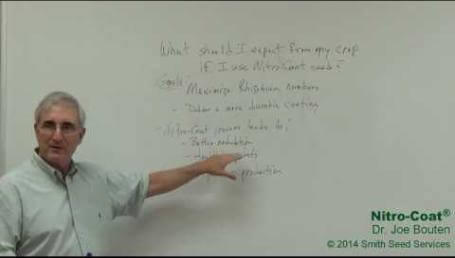 What should I expect from my crop
if I use Nitro-Coat seed?
Goals: Maximize Rhizobium numbers
- Deliver a more durable coating
- Nitro-Coat process leads to:
- Better nodulation
-
production
Nitro-Coat®
Dr. Joe Bouten
© 2014 Smith Seed Services